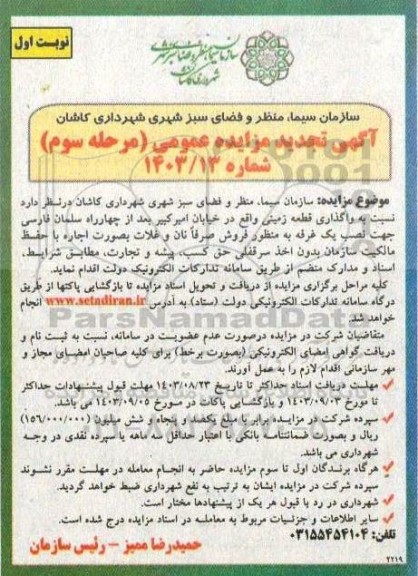 نوبت اول
سازمان سیما، منظر و فضای سبز شهری
شهرداری کاشان
سازمان سیما، منظر و فضای سبز شهری شهرداری کاشان
آگهی تجدید مزایده عمومی (مرحله سوم)
شماره ۱۴۰۳/۱۳
موضوع مزایده: سازمان سیما، منظر و فضای سبز شهری شهرداری کاشان درنظر دارد
نسبت به واگذاری قطعه زمینی واقع در خیابان امیرکبیر بعد از چهارراه سلمان فارسی
جهت نصب یک غرفه به منظور فروش صرفاً نان و غلات بصورت اجاره با حفظ
مالکیت سازمان بدون اخذ سرقفلی حق کسب، پیشه و تجارت، مطابق شرایط،
اسناد و مدارک منضم از طریق سامانه تدارکات الکترونیک دولت اقدام نماید.
کلیه مراحل برگزاری مزایده از دریافت و تحویل اسناد مزایده تا بازگشایی پاکتها از طریق
درگاه سامانه تدارکات الکترونیکی دولت (ستاد) به آدرس www.setadiran.ir انجام
خواهد شد.
متقاضیان شرکت در مزایده درصورت عدم عضویت در سامانه، نسبت به ثبت نام و
دریافت گواهی امضای الکترونیکی (بصورت برخط) برای کلیه صاحبان امضای مجاز و
مهر سازمانی اقدام لازم را به عمل آورند.
مهلت دریافت اسناد حداکثر تا تاریخ ۱۴۰۳/۰۸/۲۳ مهلت قبول پیشنهادات حداکثر
تا مورخ ۱۴۰۳/۰۹/۰۳ و بازگشایی پاکات در مورخ ۱۴۰۳/۰۹/۰۵ می باشد.
سپرده شرکت در مزایده برابر با مبلغ یکصد و پنجاه و شش میلیون (۱۵۶/۰۰۰/۰۰۰)
ریال و بصورت ضمانتنامه بانکی با اعتبار حداقل سه ماهه یا سپرده نقدی در وجه
شهرداری می باشد.
هرگاه برندگان اول تا سوم مزایده حاضر به انجام معامله در مهلت مقرر نشوند
سپرده شرکت در مزایده ایشان به ترتیب به نفع شهرداری ضبط خواهد گردید.
شهرداری در رد یا قبول هر یک از پیشنهادها مختار است.
سایر اطلاعات و جزئیات مربوط به معامله در اسناد مزایده درج شده است.
تلفن: ۰۳۱۵۵۴۵۴۱۰۴
حمیدرضا ممیز – رئیس سازمان
۲۲۱۹
ParsNamadData